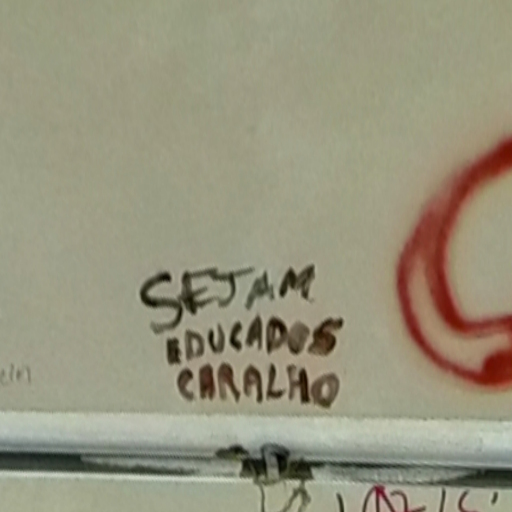 SEJAM
EDUCADOS
CARALHO